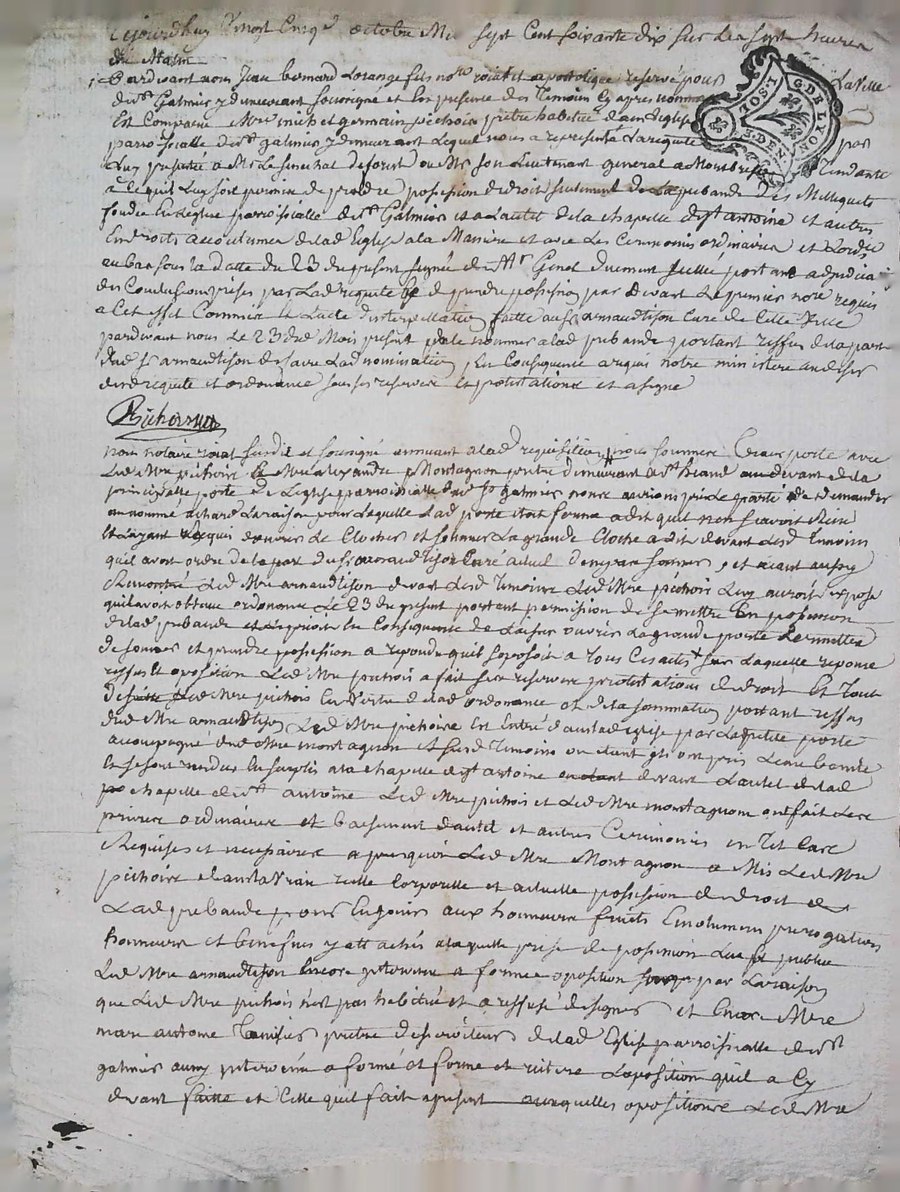 Cejourdhuy vingt cinq octobre Mil sept cent soixante dix sur les sept heures
du Matin
Pardevant nous Jean bernard Lorange fils nore roial et apostolique reservé pour La ville
de st Galmier y demeurant soussigné et En presence des Temoins cy apres nommés
Est Comparu Mre michel germain pichois prêtre habitué dans Leglise
parroissialle de st galmier y demeurant Lequel nous a representé La requete par
Luy presentée a Mr Le senechal de forest ou Mr son Lieutenant general a Montbrison Tendante
a ce quil Luy soit permis de prendre possession de droit seulement de La prebande des Muguets
fondée En Leglise parroissialle de st Galmier et a Lautel de la chapelle de st antoine et autres
Endroits accoutumés de lad Eglise a la Maniere et avec Les Ceremonies ordinaires et Lorde
au bas sous la datte du 23 du present signée de Mr Genot duement scellée portant adjudica
des Conclusions prises par Lad requete de prendre possession par devant Le premier nore requis
a Cet effet Comme et Lacte d'interpellation faitte au sr arnaudtison Curé de Cette Ville
pardevant nous Le 23 dud Mois present de le nommer a lad prebande portant reffus de la part
dud sr arnaudtison de faire Lad nomination En Consequence a requis notre ministere au desir
desd requete et ordonance sous ses reserves et protestations et a signé
Pichois
nous notaire roial susdit et soussigné avenant a lad requisition nous sommes Transporté avec
Led Mre pichois Mre alexandre Montagnon pretre demeurant a st heand au devant de la
principalle porte de Leglise parroissialle dud st galmier nous aurions
au nommé La raison pour Laquelle Lad porte etoit fermé a dit quil n'en scavoit Rien
Et Layant requis d'ouvrir Le Clocher et sonner La grande Cloche a dit devant Lesd Temoins
quil avoit ordre de la part du sr arnaudtison Curé actuel d'en pas sonner, et aiant aussy
Rencontré Led Mre arnaudtison devant Lesd temoins Led Mre pichois Luy auroit exposé
quil avoit obtenu ordonance Le 23 du present portant permission de se mettre En possession
de lad prebande et Le prioit En Consequence de Laisser ouvrir La grande porte Permettre
de sonner et prendre possession a repondu quil sopposoit a tous Ces actes sur Laquelle reponse
reffus et oposition Led Mre pichois a fait ses reserves protestations de droit Et Tout
de suitte Led Mre pichois En Vertu de lad ordonance et de la sommation portant reffus
dud Mre arnaudtison Led Mre pichois Est Entré dans lad Eglise par La petite porte
accompagné dud Mre montagnon et susd Temoins ou etant ils ont pris Leau benitte
En se sont rendus En surplis a la chapelle de st antoine devant L'autel de lad
chapelle de st antoine Led Mre pichois et Led Mre montagnon ont fait Les
prieres ordinaires et baisement d'autel et autres Ceremonies en Tel Cas
Requises et necessaires apres quoy Led Mre Montagnon a Mis Led Mre
pichois dans la Vraie réelle Corporelle et actuelle possession de droit de
Lad prebande pour En jouir aux honneurs fruits Emoluments prerogatives
honneurs et benefices y attachés a laquelle prise de possession Lue publiée
Led Mre arnaudtison Encore intervenu a formée oposition par La raison
que Led Mre pichois n'est pas habitué et a reffusé de signer et Encore Mre
marc antoine pretre deserviteur de lad Eglise parroissialle de st
galmier aussy intervenu a formé et forme et reitere Loposition quil a Cy
devant faitte et Celle quil fait apresent auxquelles opositions Led Mre
G. DE LYON